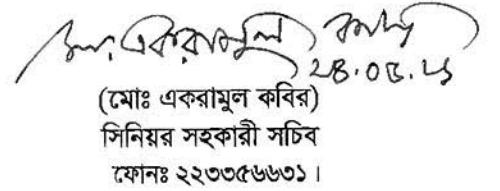 মোঃ একরামুল কবির
২৪.০৫.২১
(মোঃ একরামুল কবির)
সিনিয়র সহকারী সচিব
ফোনঃ ২২৩৩৫৬৬৩১।